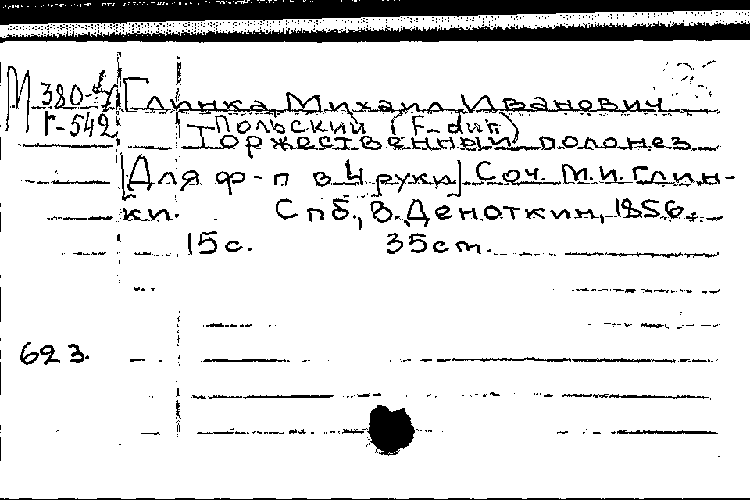 М 380-4
Г-542
Глинка Михаил Иванович
Польский (F-dur)
Торжественный полонез
[Для ф-п в 4 руки] Соч. М.И. Глин-
ки. Спб., В. Деноткин, 1856.
15 с. 35 cm.
623.